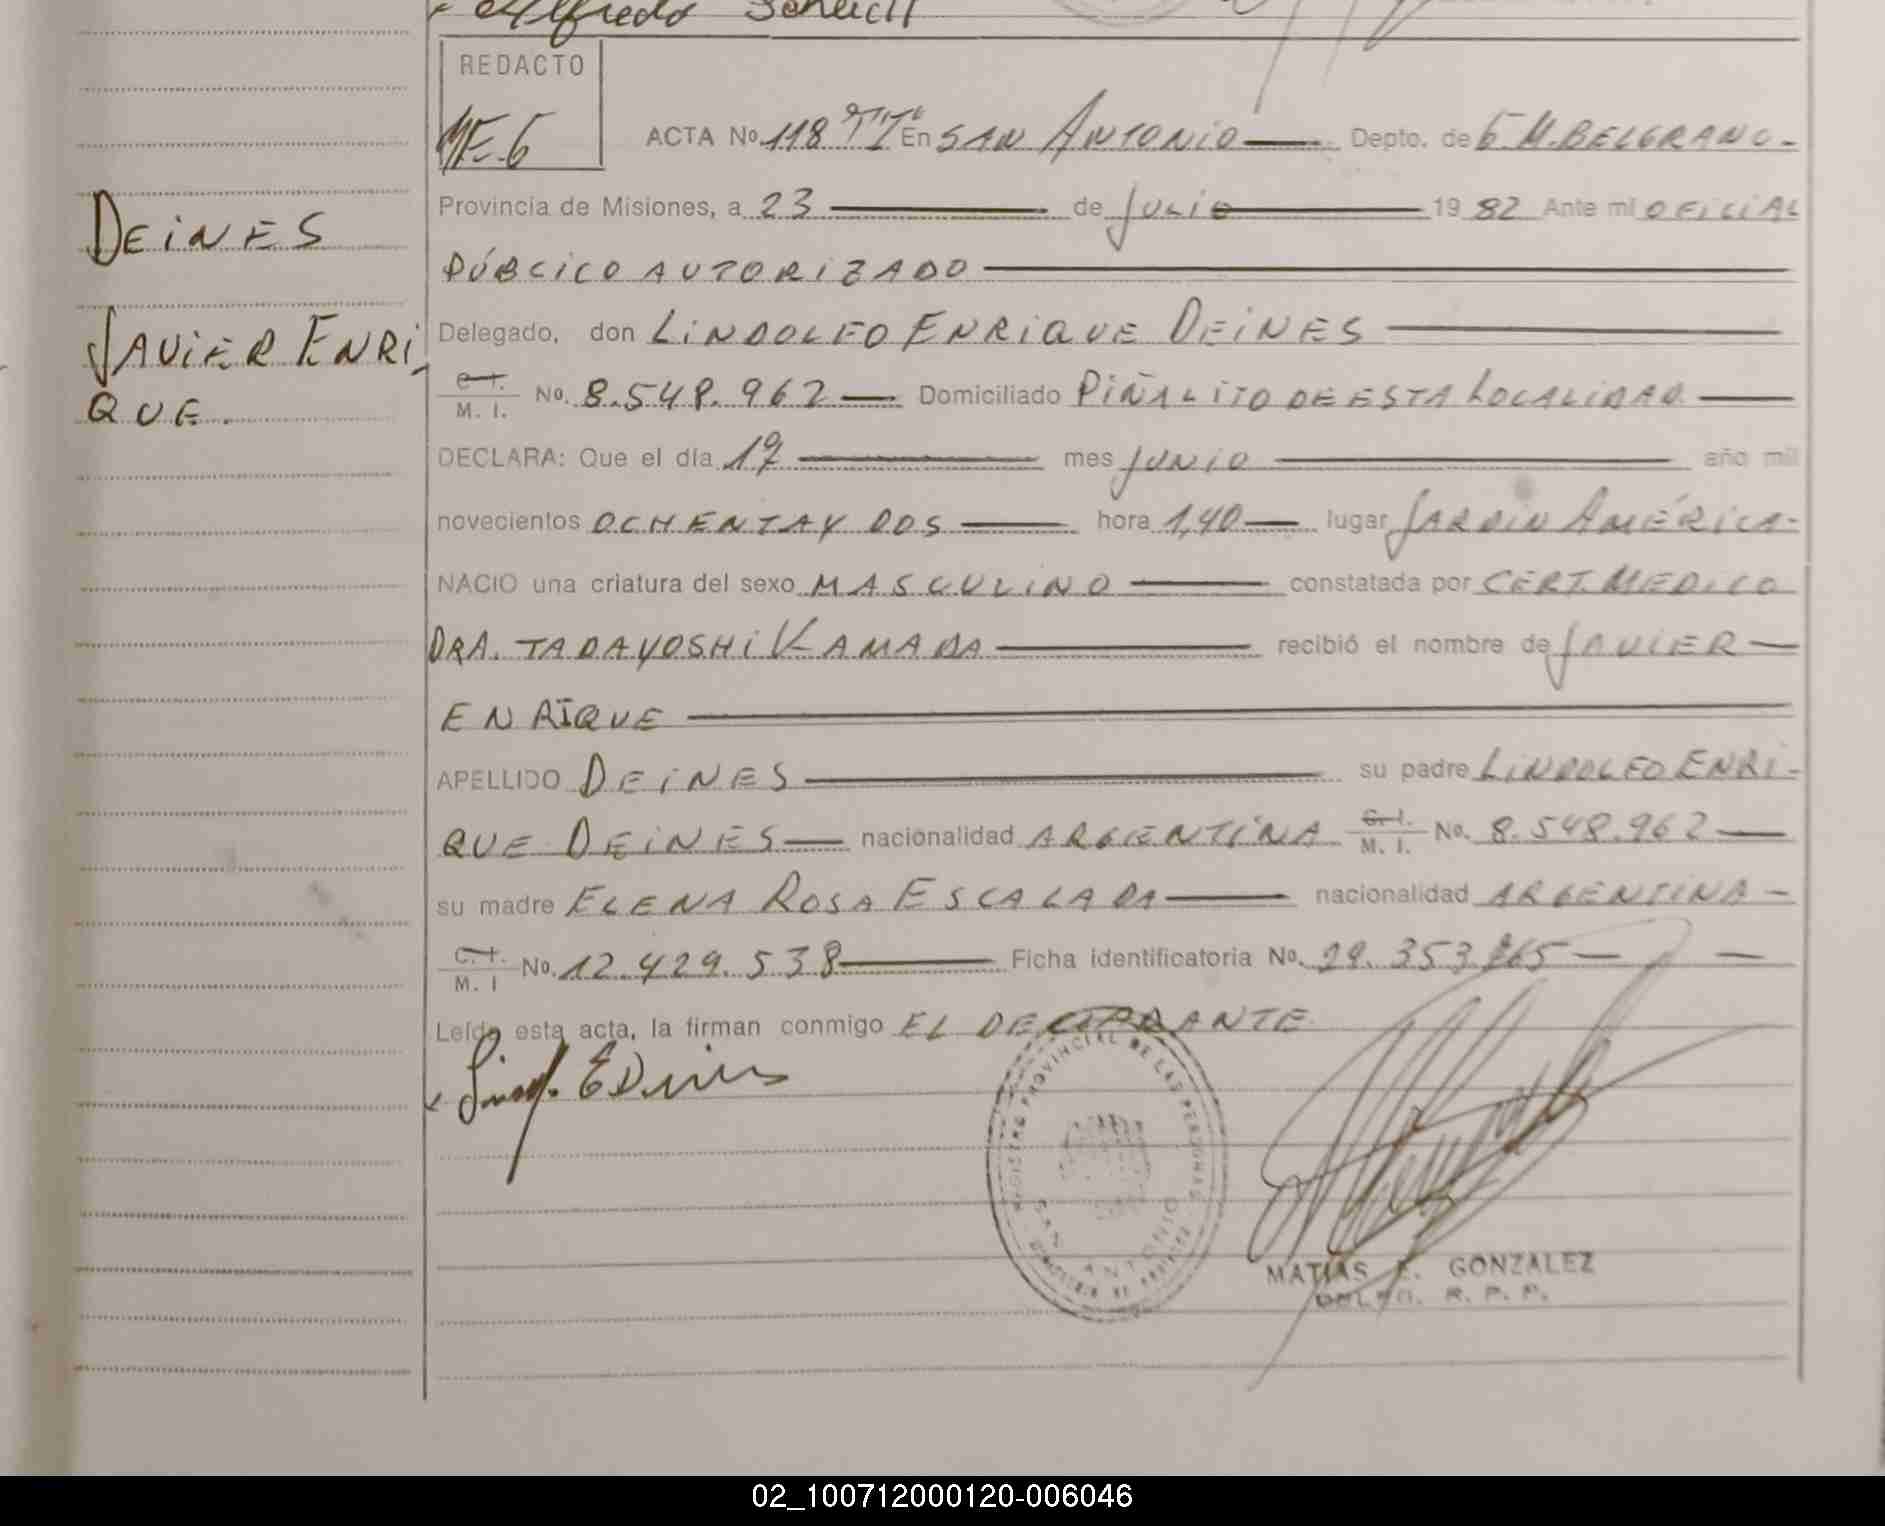 Alfredo
REDACTO
ACTA No. 118 En SAN ANTONIO Depto. de G. M. BELGRANO-
Provincia de Misiones, a 23 de JULIO 1982 Ante mi OFICIAL
DEINES
PÚBLICO AUTORIZADO
JAVIER ENRI
Delegado, don LINDOLFO ENRIQUE DEINES
QUE.
C. I. M. I. No. 8.548.962 Domiciliado PIÑALITO DE ESTA LOCALIDAD
DECLARA: Que el día 17 mes JUNIO año mil
novecientos OCHENTA Y DOS hora 1,40 lugar JARDIN AMÉRICA-
NACIO una criatura del sexo MASCULINO constatada por CERT. MEDICO
DRA. TADAYOSHI KAMADA recibió el nombre de JAVIER
ENRIQUE
APELLIDO DEINES su padre LINDOLFO ENRI-
QUE DEINES nacionalidad ARGENTINA C. I. M. I. No. 8.548.962
su madre ELENA ROSA ESCALADA nacionalidad ARGENTINA -
C. I. M. I No. 12.429.538 Ficha identificatoria No. 29.353.
Leída esta acta, la firman conmigo EL DECLARANTE
REGISTRO PROVINCIAL DE LAS PERSONAS
SAN ANTONIO
MATIAS E. GONZALEZ
DELEG. R. P. P.
02_100712000120-006046